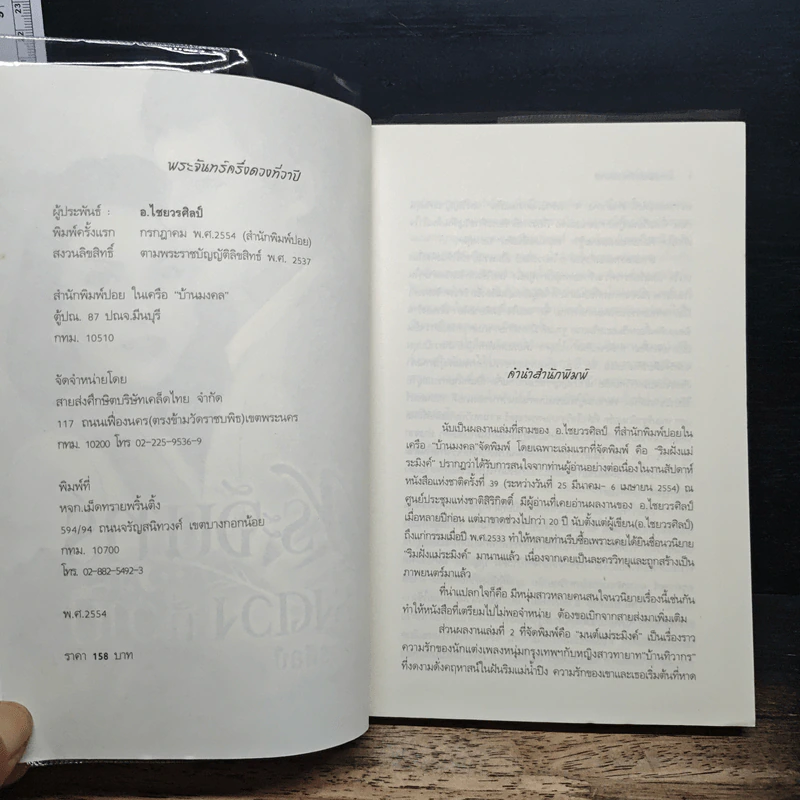 พระจันทร์ครึ่งดวงที่วาปี
ผู้ประพันธ์ : อ.ไชยวรศิลป์
พิมพ์ครั้งแรก กรกฎาคม พ.ศ.2554 (สำนักพิมพ์ปอย)
สงวนลิขสิทธิ์ ตามพระราชบัญญัติลิขสิทธ์ พ.ศ. 2537
สำนักพิมพ์ปอย ในเครือ "บ้านมงคล"
ตู้ปณ. 87 ปณจ.มีนบุรี
กทม. 10510
จัดจำหน่ายโดย
สายส่งศึกษิตบริษัทเคล็ดไทย จำกัด
117 ถนนเฟื่องนคร(ตรงข้ามวัดราชบพิธ)เขตพระนคร
กทม. 10200 โทร 02-225-9536-9
พิมพ์ที่
หจก.เม็ดทรายพริ้นติ้ง
594/94 ถนนจรัญสนิทวงศ์ เขตบางกอกน้อย
กทม. 10700
โทร. 02-882-5492-3
พ.ศ.2554
ราคา 158 บาท
คำนำสำนักพิมพ์
นับเป็นผลงานเล่มที่สามของ อ.ไชยวรศิลป์ ที่สำนักพิมพ์ปอยใน
เครือ "บ้านมงคล"จัดพิมพ์ โดยเฉพาะเล่มแรกที่จัดพิมพ์ คือ "ริมฝั่งแม่
ระมิงค์" ปรากฏว่าได้รับการสนใจจากท่านผู้อ่านอย่างต่อเนื่องในงานสัปดาห์
หนังสือแห่งชาติครั้งที่ 39 (ระหว่างวันที่ 25 มีนาคม- 6 เมษายน 2554) ณ
ศูนย์ประชุมแห่งชาติสิริกิตติ์ มีผู้อ่านที่เคยอ่านผลงานของ อ.ไชยวรศิลป์
เมื่อหลายปีก่อน แต่มาขาดช่วงไปกว่า 20 ปี นับตั้งแต่ผู้เขียน(อ.ไชยวรศิลป์)
ถึงแก่กรรมเมื่อปี พ.ศ.2533 ทำให้หลายท่านรีบซื้อเพราะเคยได้ยินชื่อนวนิยาย
"ริมฝั่งแม่ระมิงค์" มานานแล้ว เนื่องจากเคยเป็นละครวิทยุและถูกสร้างเป็น
ภาพยนตร์มาแล้ว
ที่น่าแปลกใจก็คือ มีหนุ่มสาวหลายคนสนใจนวนิยายเรื่องนี้เช่นกัน
ทำให้หนังสือที่เตรียมไปไม่พอจำหน่าย ต้องขอเบิกจากสายส่งมาเพิ่มเติม
ส่วนผลงานเล่มที่ 2 ที่จัดพิมพ์คือ "มนต์แม่ระมิงค์" เป็นเรื่องราว
ความรักของนักแต่งเพลงหนุ่มกรุงเทพฯกับหญิงสาวทายาท"บ้านทิวากร"
ที่งดงามดั่งคฤหาสน์ในฝันริมแม่น้ำปิง ความรักของเขาและเธอเริ่มต้นที่หาด